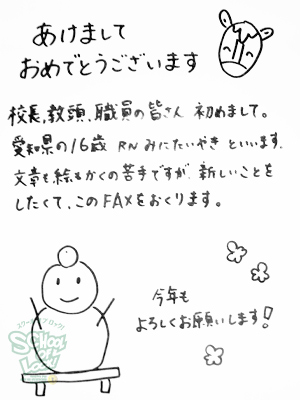 あけまして
おめでとうございます
校長,教頭,職員の皆さん 初めまして。
愛知県の16歳 RN みにたいやき といいます.
文章も絵もかくの苦手ですが 新しいことを
したくて、このFAXをおくります。
今年も
よろしくお願いします!
スクールオブロック!
SCHOOL
OF
LOCK!